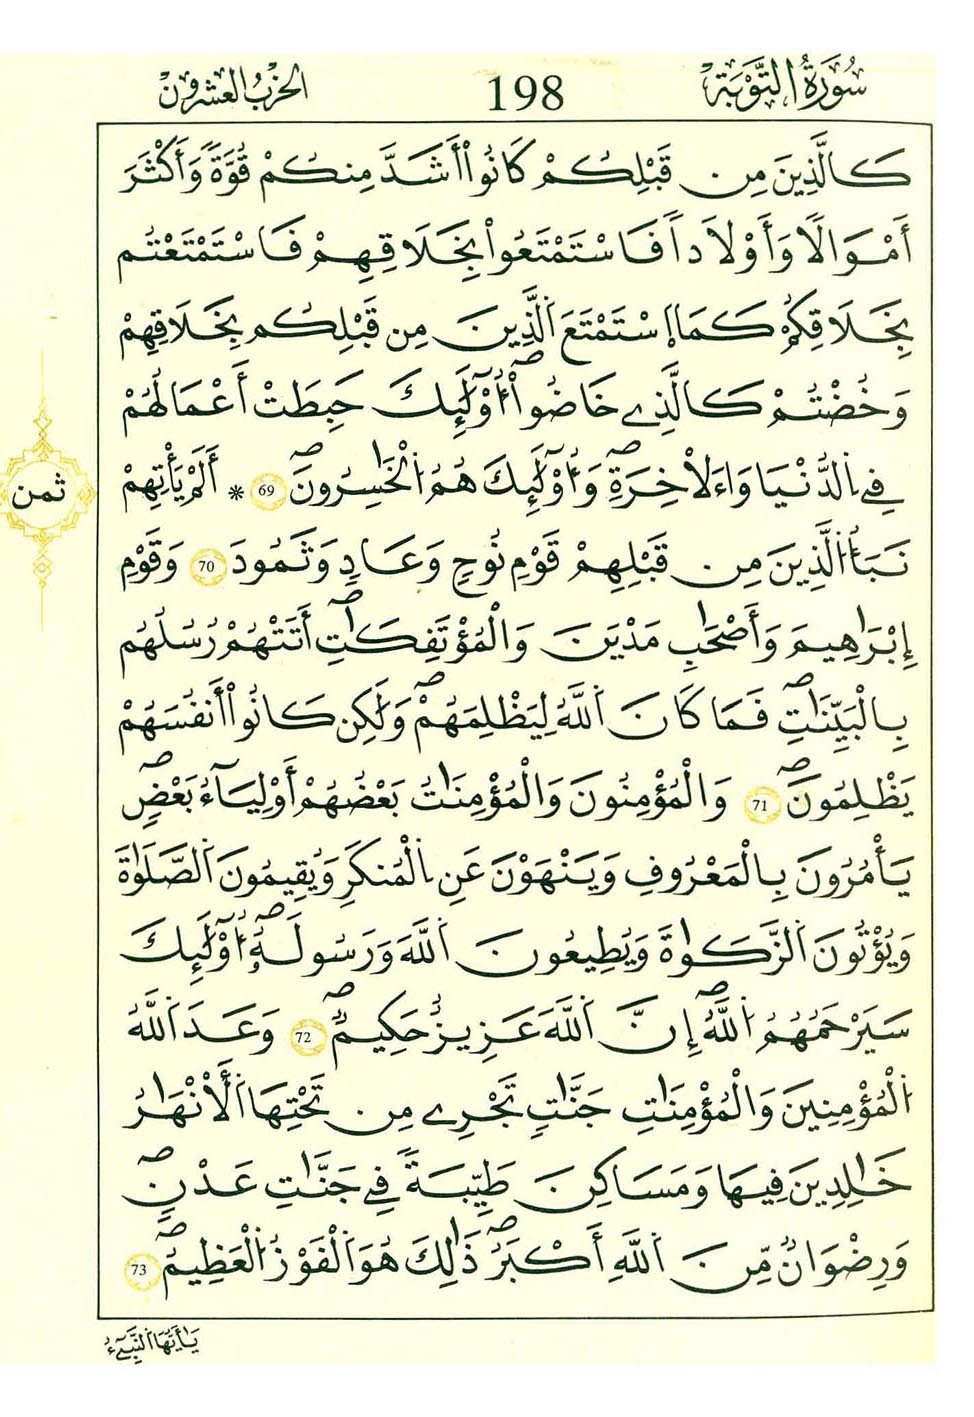 سُورَةُ التَّوْبَةِ 198 الحِزْبُ العِشْرُون
كَالَّذِينَ مِن قَبْلِكُمْ كَانُواْ أَشَدَّ مِنكُمْ قُوَّةً وَأَكْثَرَ
أَمْوَالاً وَأَوْلَاداً فَاسْتَمْتَعُواْ بِخَلَاقِهِمْ فَاسْتَمْتَعْتُم
بِخَلَاقِكُمْ كَمَا اَسْتَمْتَعَ اَلَّذِينَ مِن قَبْلِكُم بِخَلَاقِهِمْ
وَخُضْتُمْ كَالَّذِے خَاضُواْ أُوْلَٰئِكَ حَبِطَتْ أَعْمَالُهُمْ
فِے اِلدُّنْيَا وَاءَلَاْخِرَةِ وَأُوْلَٰئِكَ هُمُ اُلْخَٰسِرُونَ 69 * أَلَمْ يَأْتِهِمْ
نَبَأُ اُلَّذِينَ مِن قَبْلِهِمْ قَوْمِ نُوحٍ وَعَادٍ وَثَمُودَ 70 وَقَوْمِ
إِبْرَٰهِيمَ وَأَصْحَٰبِ مَدْيَنَ وَالْمُؤْتَفِكَٰتِ أَتَتْهُمْ رُسُلُهُم
بِالْبَيِّنَٰتِ فَمَا كَانَ اَللَّهُ لِيَظْلِمَهُمْ وَلَٰكِن كَانُواْ أَنفُسَهُمْ
يَظْلِمُونَ 71 وَالْمُؤْمِنُونَ وَالْمُؤْمِنَٰتُ بَعْضُهُمْ أَوْلِيَآءُ بَعْضٍ
يَأْمُرُونَ بِالْمَعْرُوفِ وَيَنْهَوْنَ عَنِ اِلْمُنكَرِ وَيُقِيمُونَ اَلصَّلَوٰةَ
وَيُؤْتُونَ اَلزَّكَوٰةَ وَيُطِيعُونَ اَللَّهَ وَرَسُولَهُۥ أُوْلَٰئِكَ
سَيَرْحَمُهُمُ اُللَّهُ إِنَّ اَللَّهَ عَزِيزٌ حَكِيمٌ 72 وَعَدَ اَللَّهُ
اُلْمُؤْمِنِينَ وَالْمُؤْمِنَٰتِ جَنَّٰتٍ تَجْرِے مِن تَحْتِهَا اَلَأَنْهَٰرُ
خَٰلِدِينَ فِيهَا وَمَسَاكِنَ طَيِّبَةً فِے جَنَّٰتِ عَدْنٍ
وَرِضْوَانٌ مِّنَ اَللَّهِ أَكْبَرُ ذَٰلِكَ هُوَ اَلْفَوْزُ اُلْعَظِيمُ 73
ثمن
يَٰأَيُّهَا اَلنَّبِےٓءُ